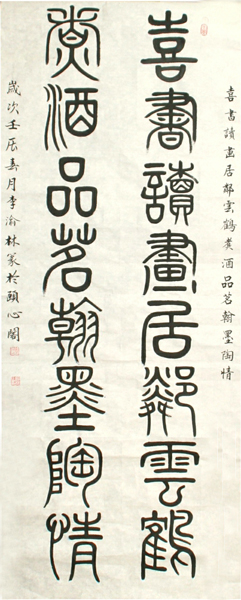 喜書讀畫居鄰雲鶴煮酒品茗翰墨陶情
喜書讀畫居鄰雲鶴
煮酒品茗翰墨陶情
歲次壬辰春月李渝林篆於頤心閣